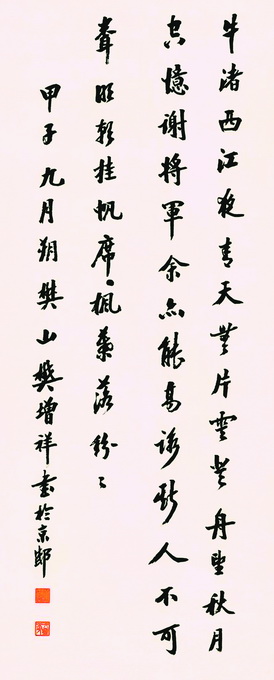 牛渚西江夜青天無片雲登舟望秋月
空憶謝將軍余亦能高詠斯人不可
聞明朝挂帆席楓葉落紛々
甲子九月朔樊山樊增祥書於京邸